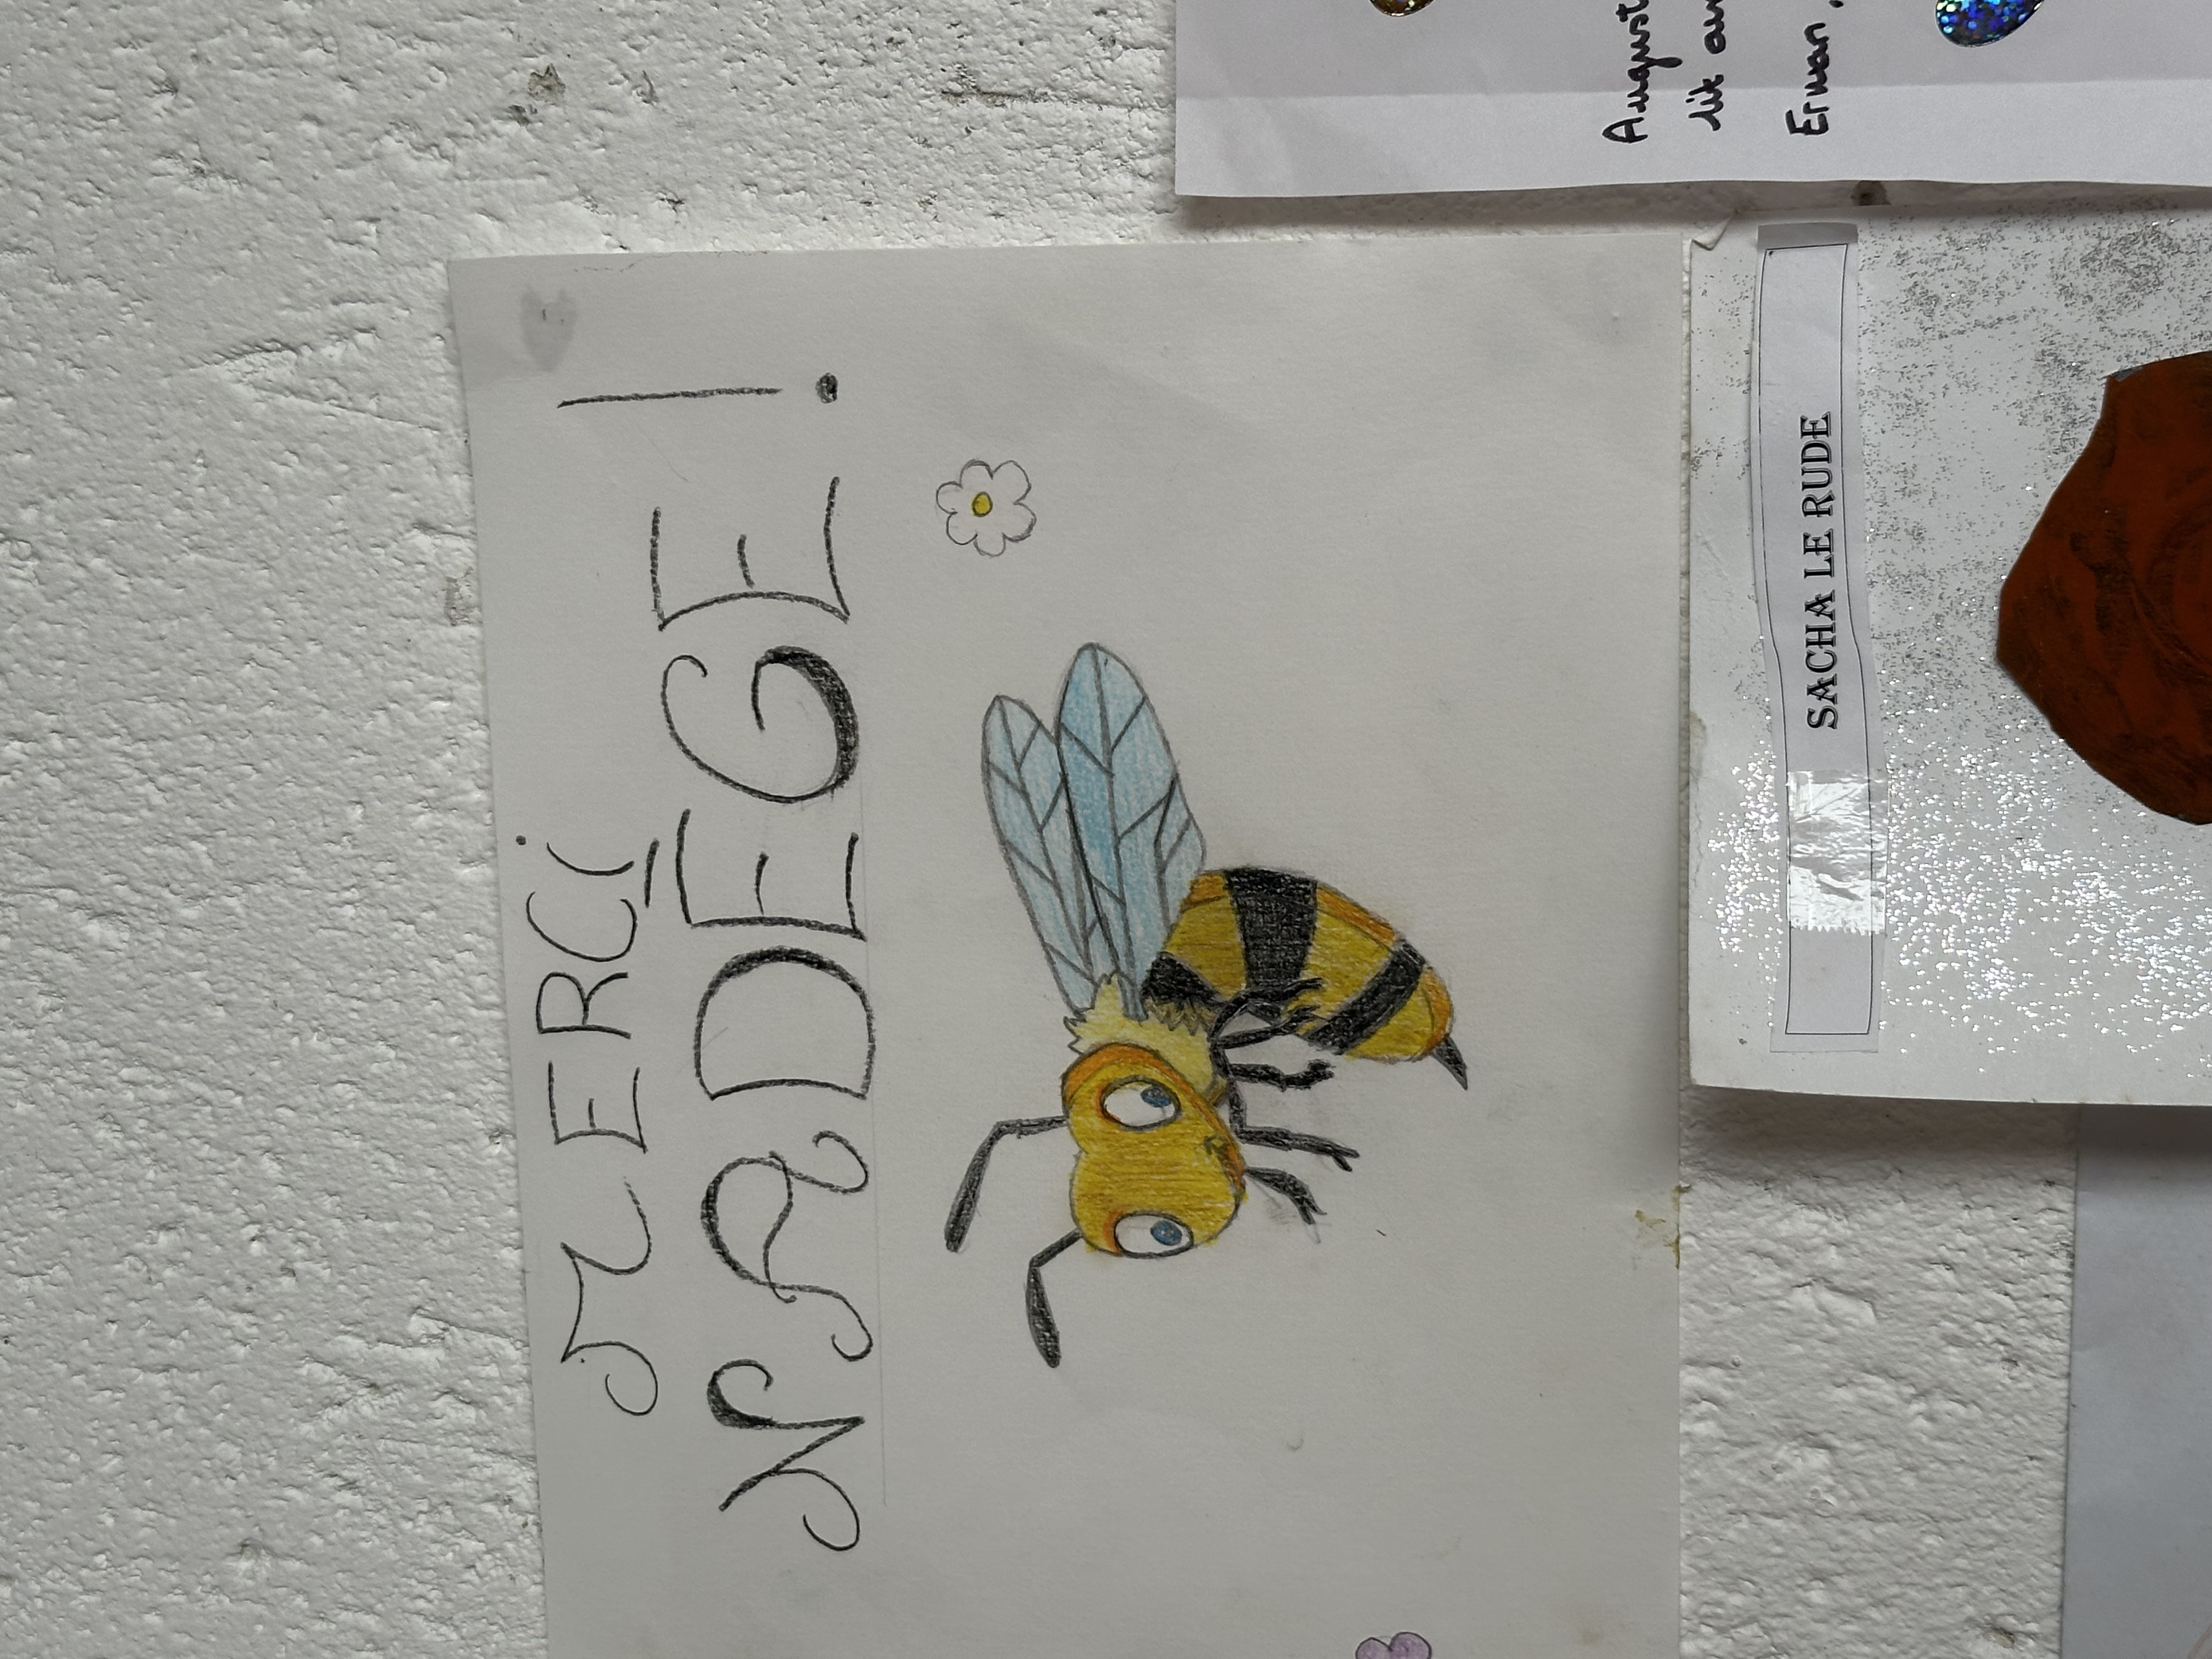 MERCi
NADĒGE !
SACHA LE RUDE
August
lit
Erwan,